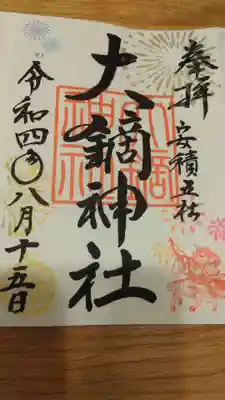 奉拝
安積五社
大鏑神社
令和四年〇八月十五日